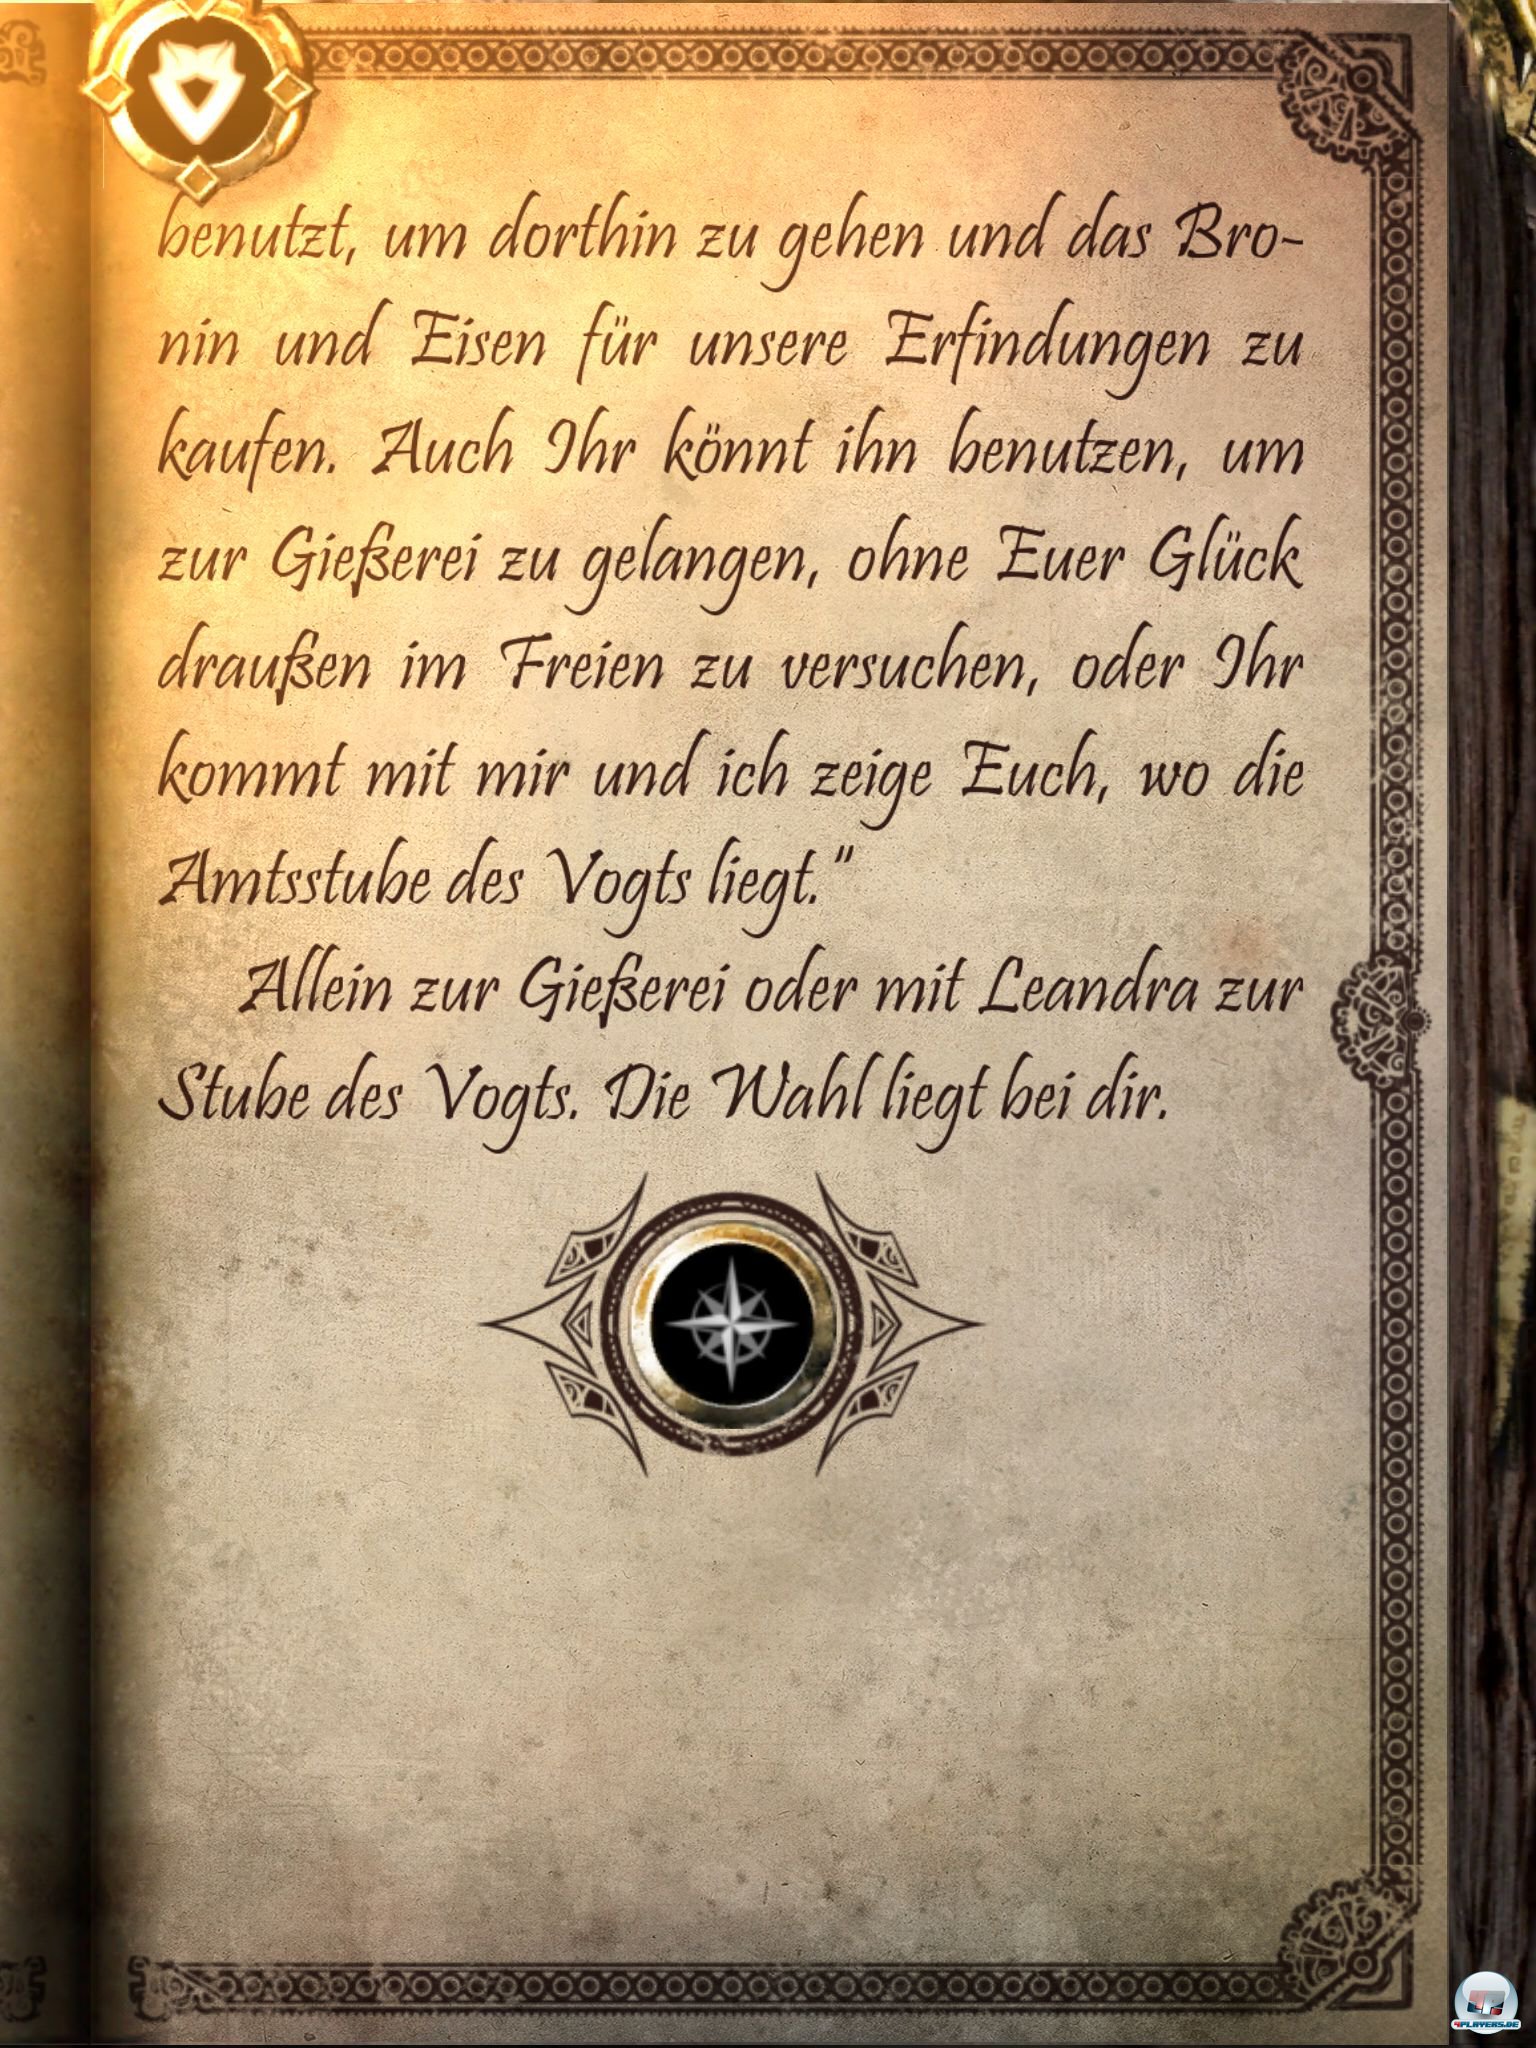 benutzt, um dorthin zu gehen und das Bro-
nin und Eisen für unsere Erfindungen zu
kaufen. Auch Ihr könnt ihn benutzen, um
zur Gießerei zu gelangen, ohne Euer Glück
draußen im Freien zu versuchen, oder Ihr
kommt mit mir und ich zeige Euch, wo die
Amtsstube des Vogts liegt."
Allein zur Gießerei oder mit Leandra zur
Stube des Vogts. Die Wahl liegt bei dir.
4PLAYERS.DE